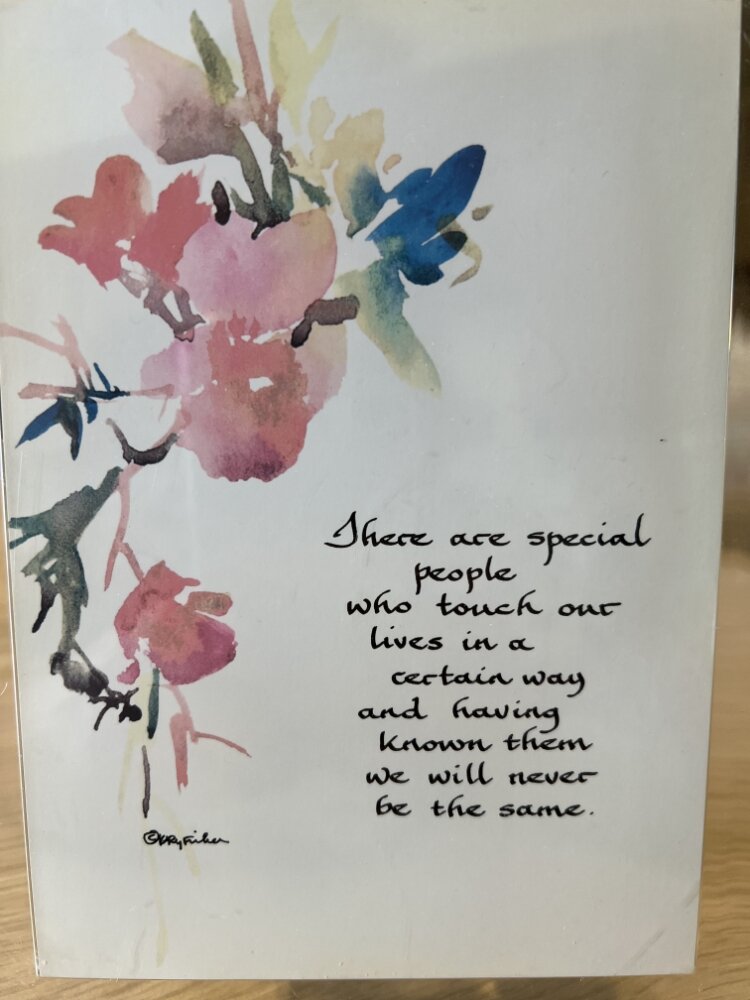 There are special
people
who touch our
lives in a
certain way
and having
known them
we will never
be the same.
©